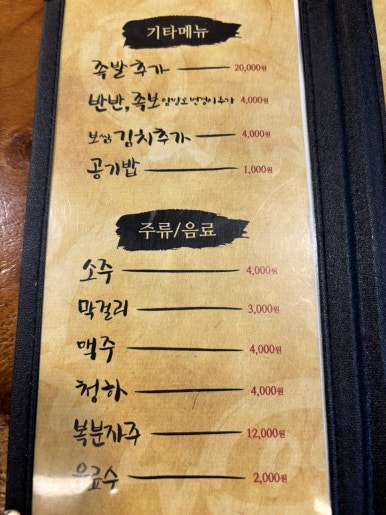 기타메뉴
족발추가 20,000원
반반,족보 4,000원
보쌈김치추가 4,000원
공기밥 1,000원
주류/음료
소주 4,000원
막걸리 3,000원
맥주 4,000원
청하 4,000원
복분자주 12,000원
음료수 2,000원